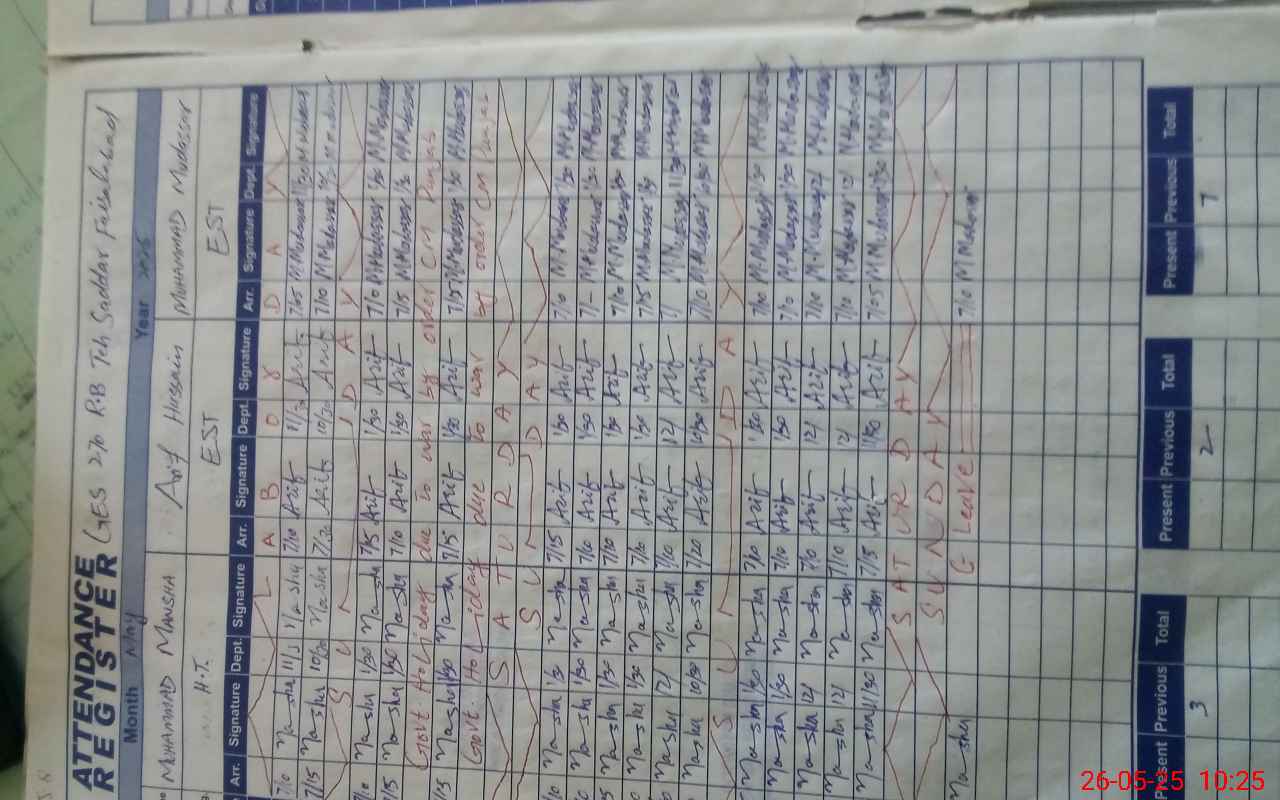 ATTENDANCE REGISTER GES 270 R.B Teh Saddar Faisalabad
Month May Year 2025
MUHAMMAD MANSHA Arif Hussain MUHAMMAD Mudassar
H.T. EST EST
Arr. Signature Dept. Signature Arr. Signature Dept. Signature Arr. Signature Dept. Signature
L A B O U R D A Y
7/10 Mansha Mansha 7/10 Arif 11/30 Arif 7/05 M Mudassar 11/30 M Mudassar
7/15 Mansha 10/30 Mansha Arif 10/30 Arif 7/10 M Mudassar M Mudassar
S U D A Y
7/10 Mansha 1/30 Mansha 7/15 Arif 1/30 Arif 7/10 M Mudassar 1/30 M Mudassar
7/15 Mansha 1/30 Mansha 7/10 Arif 1/30 Arif 7/15 M Mudassar 1/30 M Mudassar
Govt Holiday due to war by order CM Punjab
7/15 Mansha 1/30 Mansha 7/15 Arif 1/30 Arif 7/15 M Mudassar 1/30 M Mudassar
Govt. Holiday due to war by order CM Punjab
S A T U R D A Y
S U D A Y
Mansha 1/30 Mansha 7/15 Arif 1/30 Arif 7/10 M Mudassar 1/30 M Mudassar
Mansha 1/30 Mansha 7/10 Arif 1/30 Arif M Mudassar 1/30 M Mudassar
Mansha 1/30 Mansha 7/10 Arif 1/30 Arif 7/10 M Mudassar 1/30 M Mudassar
Mansha 1/30 Mansha 7/10 Arif 1/30 Arif 7/15 M Mudassar 1/30 M Mudassar
Mansha 12/ Mansha 7/10 Arif 12/ Arif M Mudassar 11/30 M Mudassar
Mansha 10/30 Mansha 7/20 Arif 10/30 Arif 7/10 M Mudassar 10/30 M Mudassar
S U D A Y
Mansha 1/30 Mansha 7/10 Arif 1/30 Arif 7/10 M Mudassar 1/30 M Mudassar
Mansha 1/30 Mansha 7/10 Arif 1/30 Arif 7/10 M Mudassar 1/30 M Mudassar
Mansha 12/ Mansha 7/10 Arif 12/ Arif 7/10 M Mudassar 12/ M Mudassar
Mansha 12/ Mansha 7/10 Arif 12/ Arif 7/10 M Mudassar 12/ M Mudassar
Mansha 11/30 Mansha 7/15 Arif 11/30 Arif 7/05 M Mudassar 11/30 M Mudassar
S A T U R D A Y
S U N D A Y
Mansha G Leave 7/10 M Mudassar
Present Previous Total Present Previous Total Present Previous Total
3 2 1
26-05-25 10:25